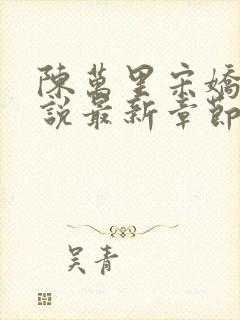 陳萬里宋嬌
說最新章節
吴青